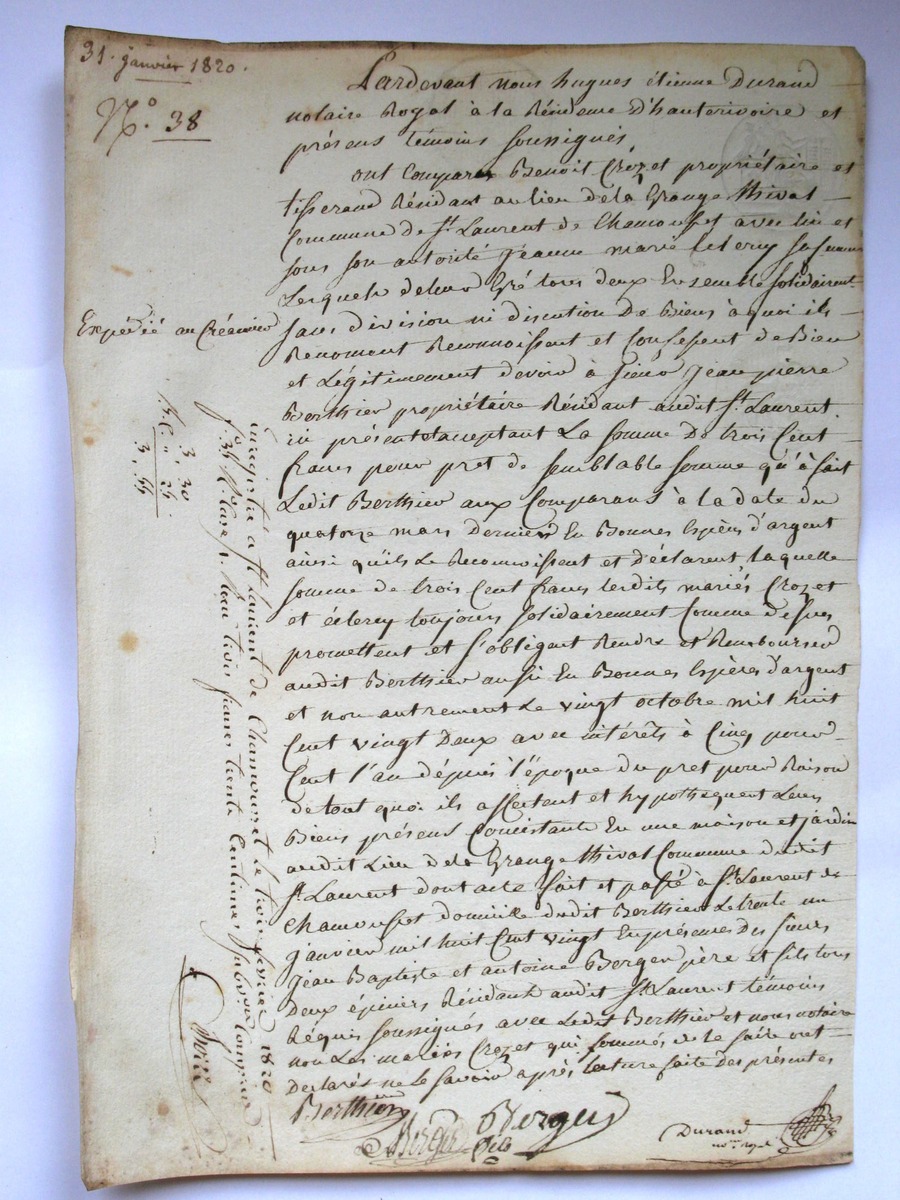 31. janvier 1820.
N.° 38
Pardevant nous hugues étienne Durand
notaire Royal à la Résidence D'hauterivoire et
présens témoins soussignés
ont Comparu Benoit Crozet propriétaire et
tisserand Résidant au lieu de la Grange thival
Commune de St. Laurent de Chamousset avec lui et
sous son autorité Jeanne marie leleruy sa femme
Lesquels de leur Gré tous deux Ensemble solidairemt.
sans division ni discution De Biens à quoi ils
Renoncent Reconnoissent et Confessent de Bien
et Légitimement devoir à sieur Jean pierre
Berthier propriétaire Résidant audit St. Laurent.
ici présent et acceptant La somme De trois Cent
francs pour pret de semblable somme qu'à fait
Ledit Berthier aux Comparans à la date du
quatorze mars Dernier En Bonnes Espèces d'argent
ainsi qu'ils Le Reconnoissent et Déclarent, laquelle
somme de trois Cent francs lesdits mariés Crozet
et éclercy toujours solidairement Comme dessus
promettent et s'obligent Rendre et Rembourser
audit Berthier aussi En Bonnes Espèces d'argent
et non autrement Le vingt octobre mil huit
Cent vingt Deux avec intérêts à Cinq pour
Cent l'an dépuis l'époque du pret pour Raison
de tout quoi ils affectent et hypothèquent Leurs
Biens présens Consistants En une maison et jardin
audit Lieu de la Grange thival Commune dudit
St. Laurent dont acte fait et passé à St. Laurent de
Chamousset domicille dudit Berthier Le trente un
janvier mil huit Cent vingt En présence Des sieurs
Jean Baptiste et antoine Berger père et fils tous
Deux épiciers Résidant audit St. Laurent témoins
Réquis soussignés avec Ledit Berthier et nous notaire
non Les mariés Crozet qui sommés de le faire ont
Déclarés ne le savoir après lecture faite des présentes
Berthier
Berger
Berger
fils
Durand
nore. royal
Expédié au Créancier
3, 30
3, 55
Enregistré a St Laurent de Chamousset le trois fevrier 1820
Reçu trois francs trente Centimes